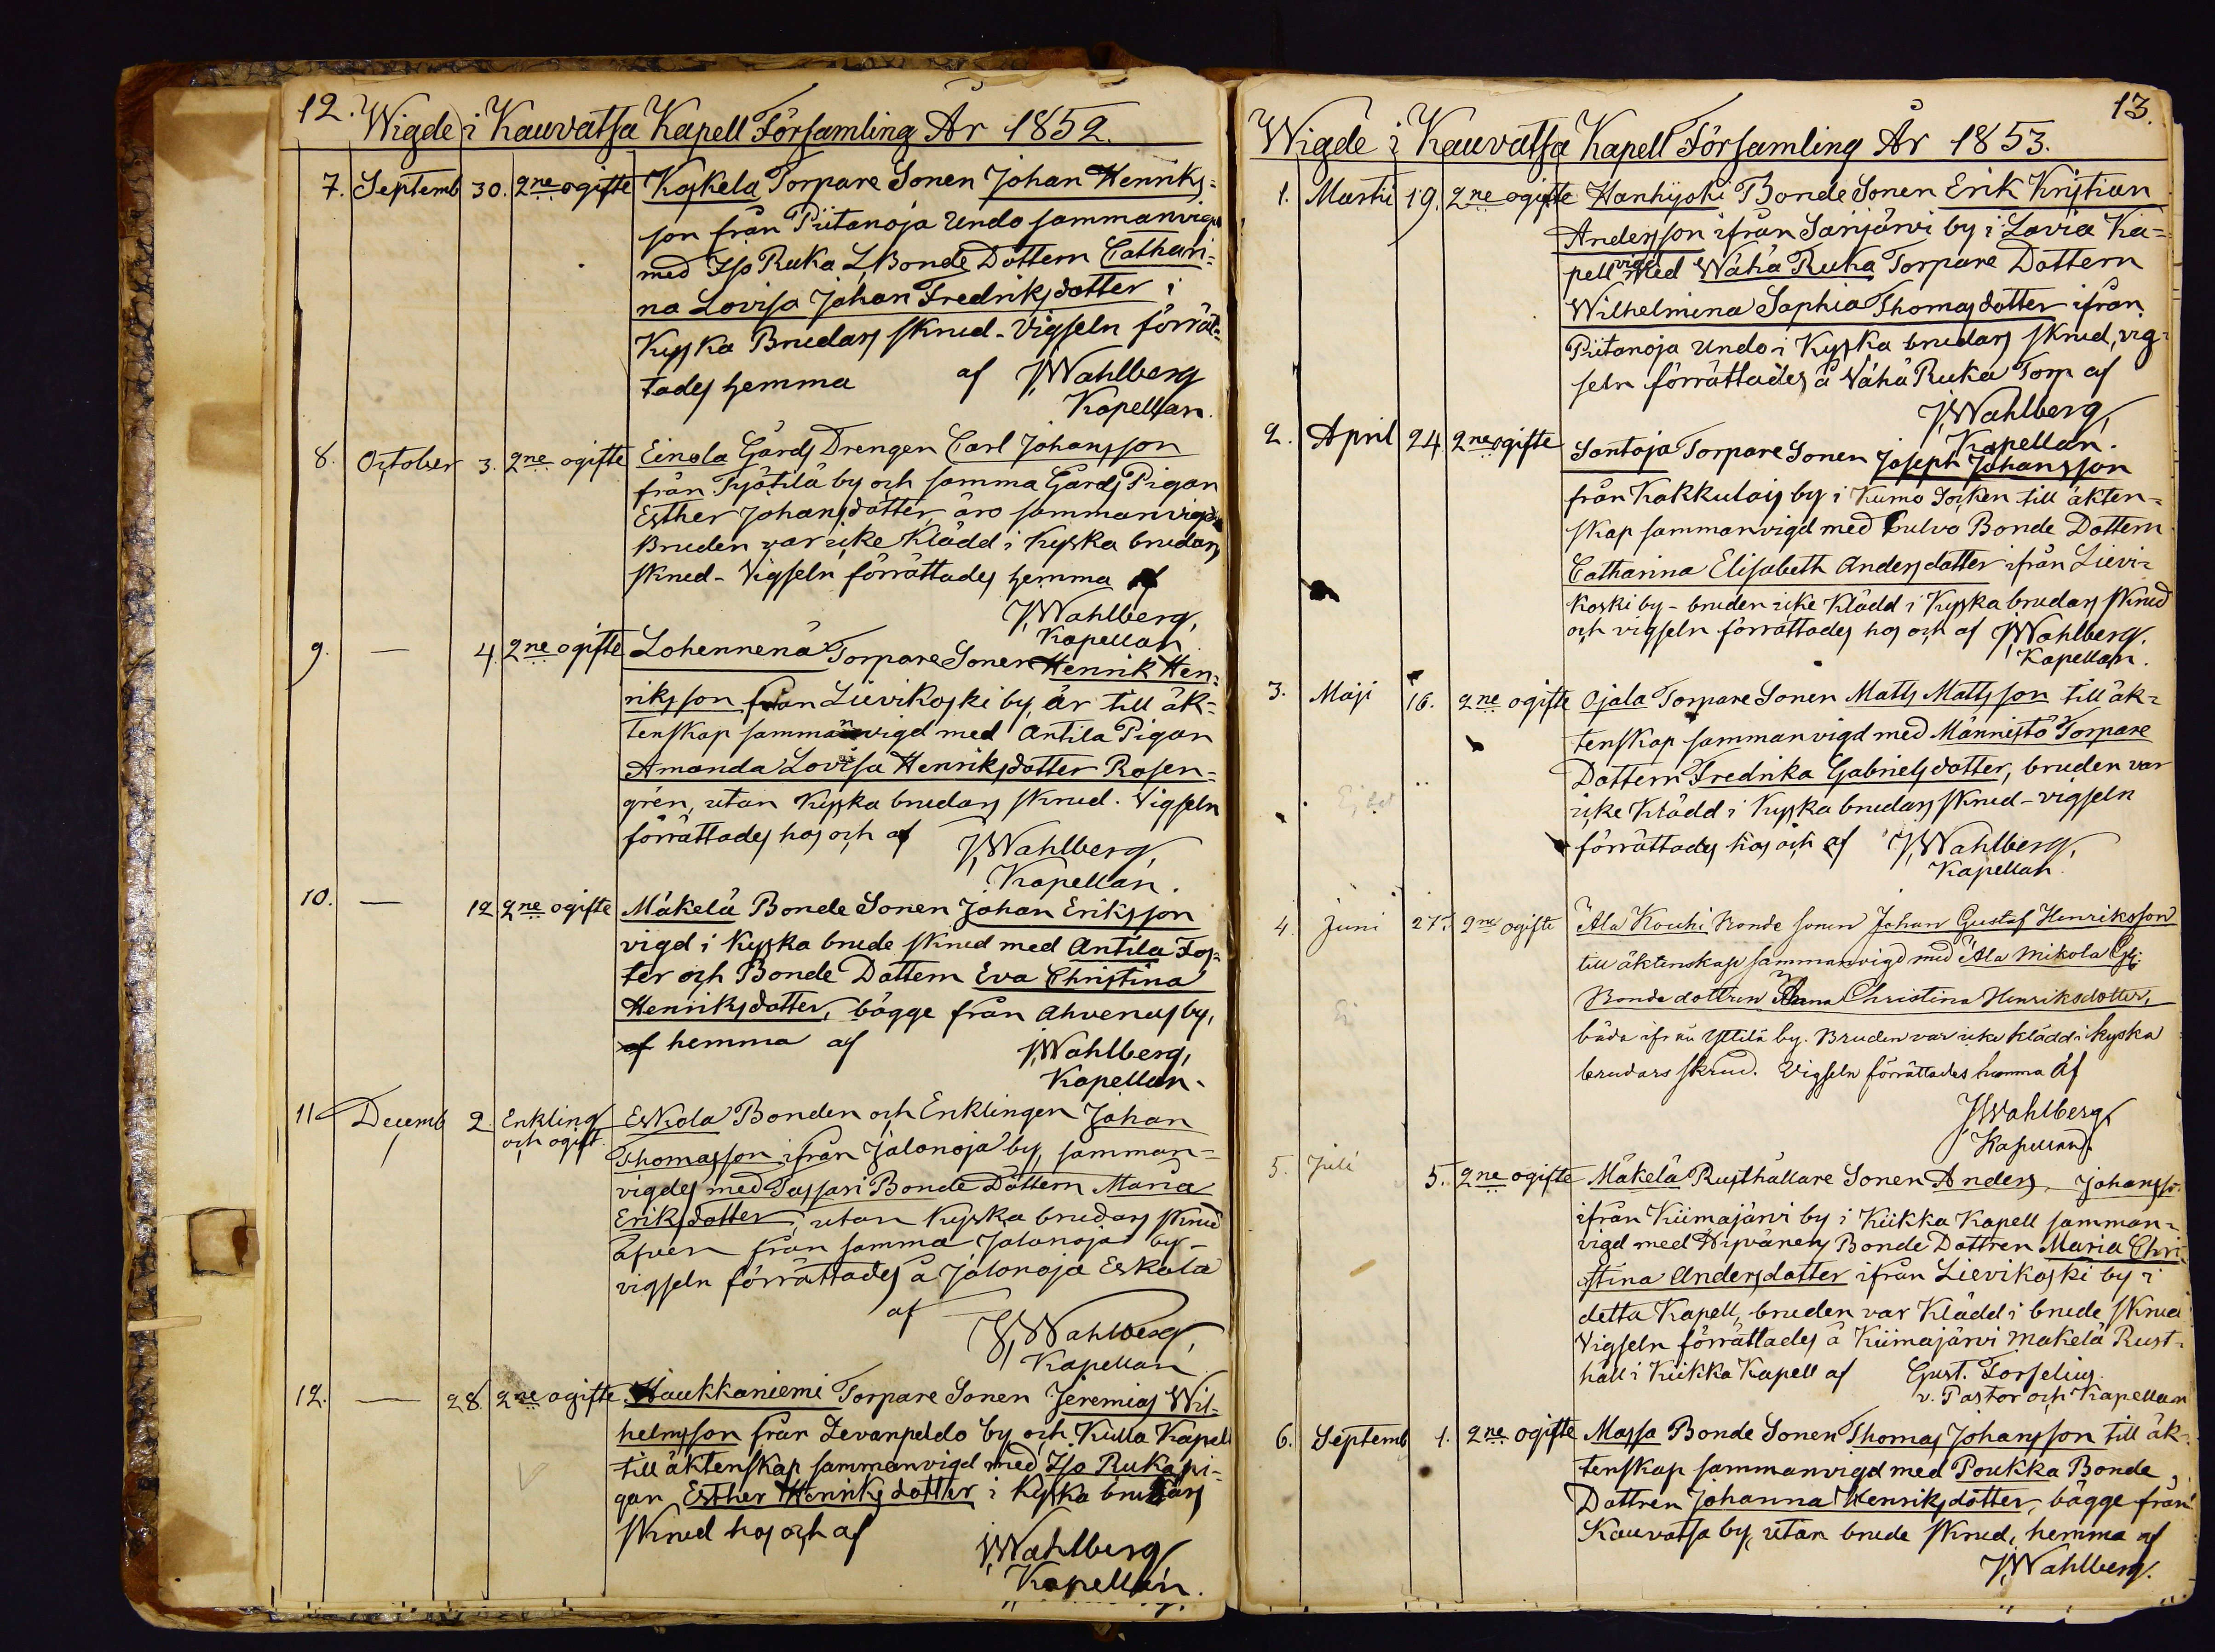 12. Wigde i Kauvatsa Kapell Församling År 1852.
7. Septemb 30. 2ne ogifte Koskela Torpare Sonen Johan Henriks=
son från Piitanoja Undo sammanvigd
med Iso Ruka L. Bonde Dottern Cathari=
na Lovisa Johan Fredriksdotter i
Kyska Brudars skrud - Vigseln förrät=
tades hemma af J. Wahlberg
Kapellan.
8. October 3. 2ne ogifte Einola Gårds Drengen Carl Johansson
från Yjötilä by och samma Gårds Pigan
Esther Johansdotter äro sammanvigde
Bruden var icke Klädd i Kyska brudars
skrud - Vigseln förrättades hemma af
J. Wahlberg,
Kapellan
9. — 4. 2ne ogifte Lohennenä Torpare Sonen Henrik Hen=
riksson från Lievikoski by, är till äk=
tenskap sammanvigd med Antila Pigan
Amanda Lovisa Henriksdotter Rosen=
grén, utan Kyska brudars skrud. Vigseln
förrättades hos och af J. Wahlberg,
Kapellan.
10. — 12 2ne ogifte Mäkelä Bonde Sonen Johan Eriksson
vigd i Kyska brude skrud med Antila Fos=
ter och Bonde Dottern Eva Christina
Henriksdotter, bägge från Ahvenus by,
af hemma af J. Wahlberg,
Kapellan.
11 Decemb 2. Enkling och ogift. Eskola Bonden och Enklingen Johan
Thomasson ifrån Jalonoja by, samman=
vigdes med Tassari Bonde Dottern Maria
Eriksdotter, utan Kyska brudars skrud
äfven från samma Jalonoja by -
vigseln förrättades å Jalonoja Eskola
af J. Wahlberg,
Kapellan
12. — 28. 2ne ogifte Haukkaniemi Torpare Sonen Jeremias Wil=
helmsson från Levanpeldo by och Kulla Kapell
till äktenskap sammanvigd med Iso Ruka pi=
gan Esther Henriksdotter i Kyska brudars
skrud hos och af J. Wahlberg
Kapellan.
13.
Wigde i Kauvatsa Kapell Församling År 1853.
1. Martii 19. 2ne ogifte Hanhijoki Bonde Sonen Erik Kristian
Andersson ifrån Sarijärvi by i Lavia Ka=
pell vigd med Wähä Ruka Torpare Dottern
Wilhelmina Sophia Thomasdotter ifrån
Piitanoja Undo i Kyska brudars skrud, vig=
seln förrättades å Vähä Ruka Torp af
J. Wahlberg,
Kapellan.
2. April 24. 2ne ogifte Santoja Torpare Sonen Joseph Johansson
från Kakkulais by i Kumo Socken till äkten=
skap sammanvigd med Pulvo Bonde Dottern
Catharina Elisabeth Andersdotter ifrån Lievi=
koski by - bruden icke Klädd i Kyska brudars skrud
och vigseln förrättades hos och af J. Wahlberg.
Kapellan.
3. Maji 16. 2ne ogifte Ojala Torpare Sonen Matts Mattsson till äk=
tenskap sammanvigd med Männistö Torpare
Dottern Fredrika Gabrielsdotter, bruden var
icke Klädd i Kyska brudars skrud - vigseln
förrättades hos och af J. Wahlberg,
Kapellan.
4. Juni 27. 2ne ogifte Ala Kouhi Bonde sonen Johan Gustaf Henriksson
till äktenskap sammanvigd med Ala Mikola
Bonde dottren Anna Christina Henriksdotter,
båda ifrån Yttilä by. Bruden var icke klädd i kyska
brudars skrud. Vigseln förrättades hemma Af
J. Wahlberg,
Kapellan.
5. Juli 5. 2ne ogifte Mäkelä Rusthållare Sonen Anders Johansso.
ifrån Kiimajärvi by i Kiikka Kapell samman=
vigd med Hirvänens Bonde Dottren Maria Chri=
stina Andersdotter ifrån Lievikoski by i
detta Kapell, bruden var Klädd i brude skrud
Vigseln förrättades å Kiimajärvi Mäkelä Rust=
håll i Kiikka Kapell af Gust. Forselius.
v. Pastor och Kapellan
6. Septemb 1. 2ne ogifte Massa Bonde Sonen Thomas Johansson till äk=
tenskap sammanvigd med Poukka Bonde
Dottren Johanna Henriksdotter, bägge från
Kauvatsa by, utan brude skrud, hemma af
J. Wahlberg.